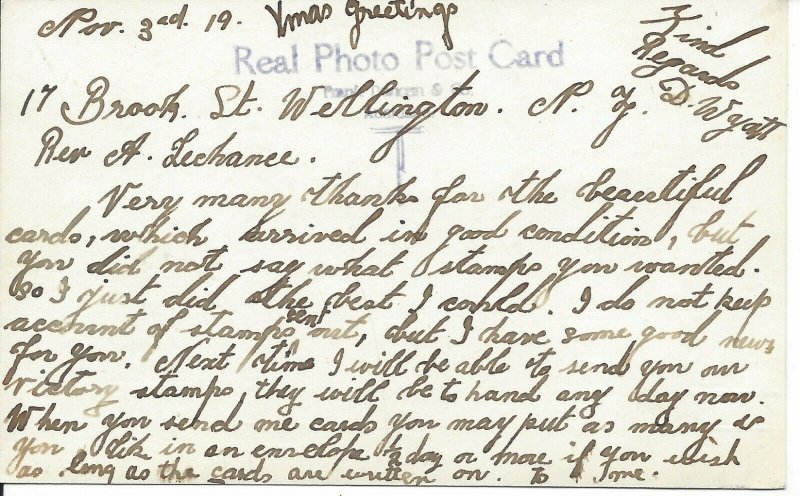 Nov. 3rd. 19. Xmas Greetings
Real Photo Post Card
Kind
Regards
D. Wyatt
17 Brook. St. Wellington. N. Z.
Rev A. Lechance.
Very many thanks for the beautiful
cards, which arrived in good condition, but
you did not say what stamps you wanted.
so I just did the best I could. I do not keep
account of stamps sent out, but I have some good news
for you. Next time I will be able to send you our
victory stamps, they will be to hand any day now.
When you send me cards you may put as many as
you like in an envelope ½ doz or more if you wish
as long as the cards are written on. to me.